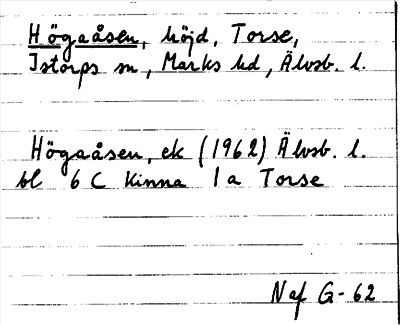 Högaåsen, höjd, Torse,
Istorps sn, Marks hd, Älvsb. l.
Högaåsen, ek (1962) Älvsb. l.
bl 6 C Kinna 1 a Torse
Naf G-62